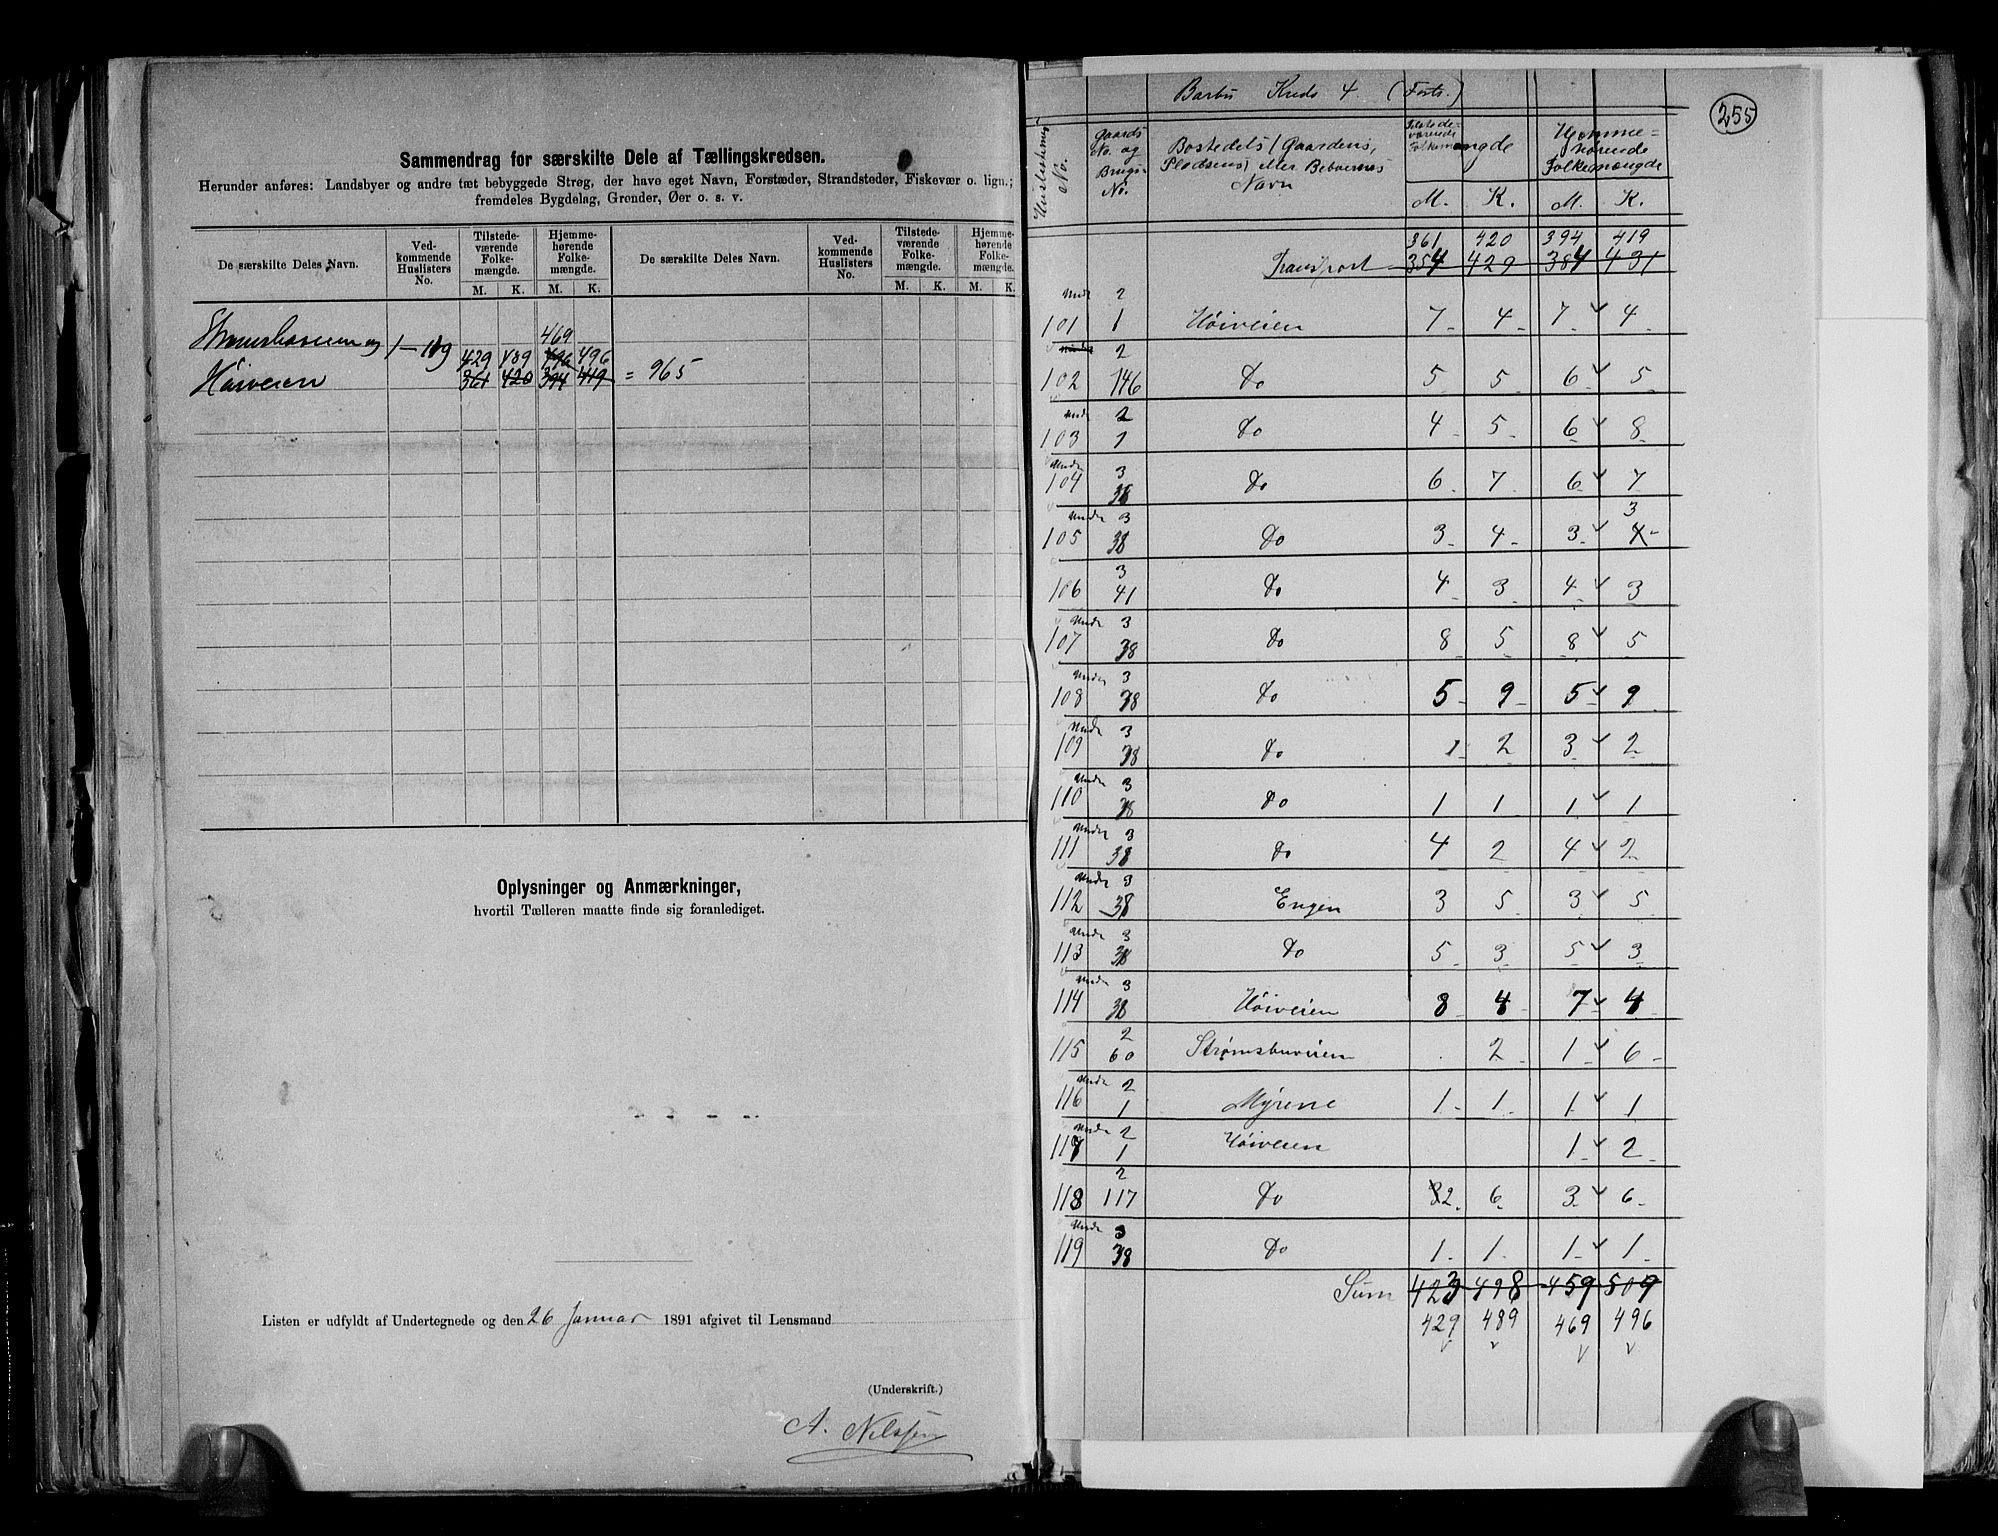 Sammendrag for særskilte Dele af Tællingskredsen.
Herunder anføres: Landsbyer og andre tæt bebyggede Strøg, der have eget Navn, Forstæder, Strandsteder, Fiskevær o. lign.;
fremdeles Bygdelag, Grender, Øer o. s. v.
De særskilte Deles Navn. Ved-kommende Huslisters No. Tilstede-værende Folke-mængde. Hjemme-hørende Folke-mængde. De særskilte Deles Navn. Ved-kommende Huslisters No. Tilstede-værende Folke-mængde. Hjemme-hørende Folke-mængde.
M. K. M. K. M. K. M. K.
469
Strømsbuveien og 1-119 429 489 496 496
Høiveien 361 420 394 419 = 965
Oplysninger og Anmærkninger,
hvortil Tælleren maatte finde sig foranlediget.
Listen er udfyldt af Undertegnede og den 26 Januar 1891 afgivet til Lensmand
(Underskrift.)
A. Nilssen
255
Barbu Kreds 4 (Forts.)
Huslisternes No. Gaards No. og Brugs-No. Bostedets (Gaardens, Pladsens) eller Beboernes Navn Tilstede-værende Folkemængde Hjemme-hørende Folkemængde
M. K. M. K.
361 420 394 419
Transport 354 429 384 431
101 Under 2 1 Høiveien 7 4 7 4
102 2 146 Do 5 5 6 5
103 Under 2 1 Do 4 5 6 8
104 Under 3 38 Do 6 7 6 7
105 Under 3 38 Do 3 4 3 4 3
106 3 41 Do 4 3 4 3
107 Under 3 38 Do 8 5 8 5
108 Under 3 38 Do 5 9 5 9
109 Under 3 38 Do 1 2 3 2
110 Under 3 38 Do 1 1 1 1
111 Under 3 38 Do 4 2 4 2
112 Under 3 38 Engen 3 5 3 5
113 Under 3 38 Do 5 3 5 3
114 Under 3 38 Høiveien 8 4 7 4
115 2 60 Strømsbuveien . 2 1 6
116 Under 2 1 Myrene 1 1 1 1
117 Under 2 1 Høiveien 1 2
118 2 117 Do 32 6 3 6
119 Under 3 38 Do 1 1 1 1
Sum 423 498 459 509
429 489 469 496